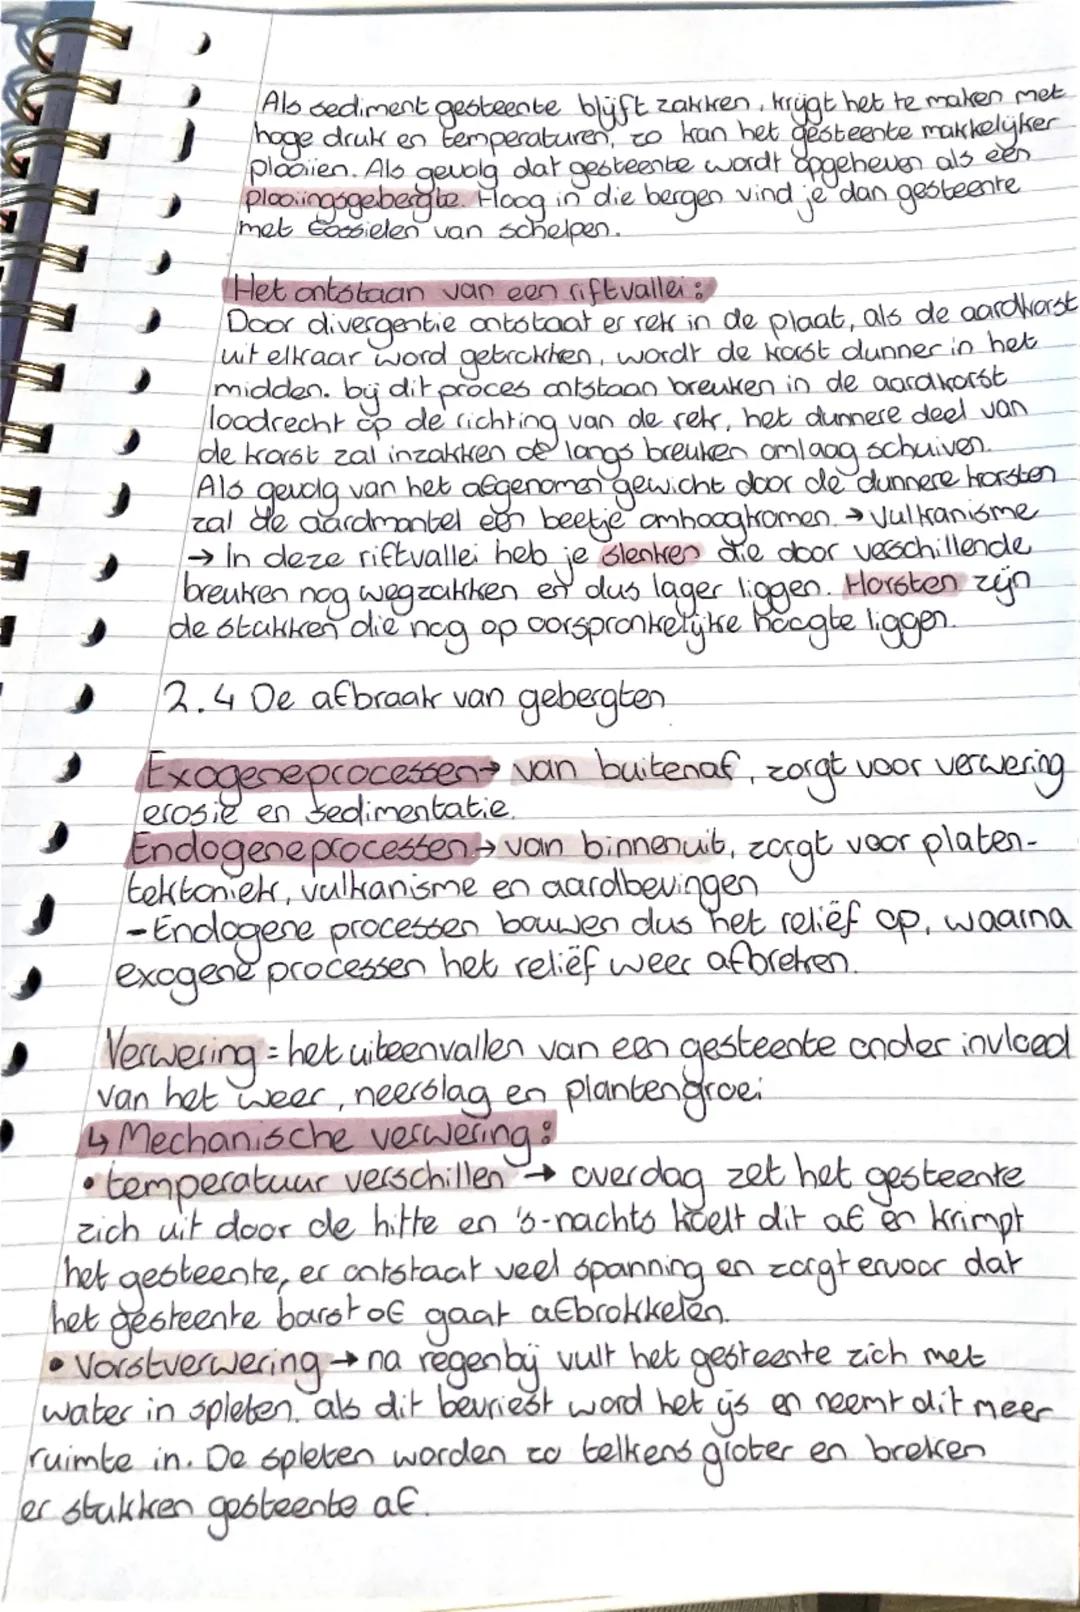 Als sediment gesteente blijft zakken, krijgt het te maken met
hoge druk en temperaturen, zo kan het gesteente makkelijker
plooiien. Als gevolg dat gesteente wordt opgeheven als een
plooiingsgebergte. Hoog in die bergen vind je dan gesteente
met fossielen van schelpen.
Het ontstaan van een riftvallei:
Door divergentie ontstaat er rek in de plaat, als de aardkorst
uit elkaar word getrokken, wordt de korst dunner in het
midden. bij dit proces ontstaan breuken in de aardkorst
loodrecht op de richting van de rek, het dunnere deel van
de korst zal inzakken de langs breuken omlaag schuiven.
Als gevolg van het afgenomen gewicht door de dunnere korsten
zal de aardmantel een beetje omhoogkomen. → Vulkanisme
→ In deze riftvallei heb je slenken die door verschillende
breuken nog wegzakken en dus lager liggen. Horsten zijn
de stukken die nog op oorspronkelijke hoogte liggen.
2.4 De afbraak van gebergten
Exogene processen → van buitenaf, zorgt voor verwering
erosie en sedimentatie.
Endogene processen → van binnenuit, zorgt voor platen-
tektoniek, vulkanisme en aardbevingen
- Endogene processen bouwen dus het reliëf op, waarna
exogene processen het reliëf weer afbreken.
Verwering = het uiteenvallen van een gesteente onder invloed
van het weer, neerslag en plantengroei
↳ Mechanische verwering:
• temperatuur verschillen → overdag zet het gesteente
zich uit door de hitte en 's-nachts koelt dit af en krimpt
het gesteente, er ontstaat veel spanning en zorgt ervoor dat
het gesteente barst of gaat afbrokkelen.
• Vorstverwering → na regenbij vult het gesteente zich met
water in spleten. als dit bevriest word het ijs en neemt dit meer
ruimte in. De spleten worden zo telkens groter en breken
er stukken gesteente af.